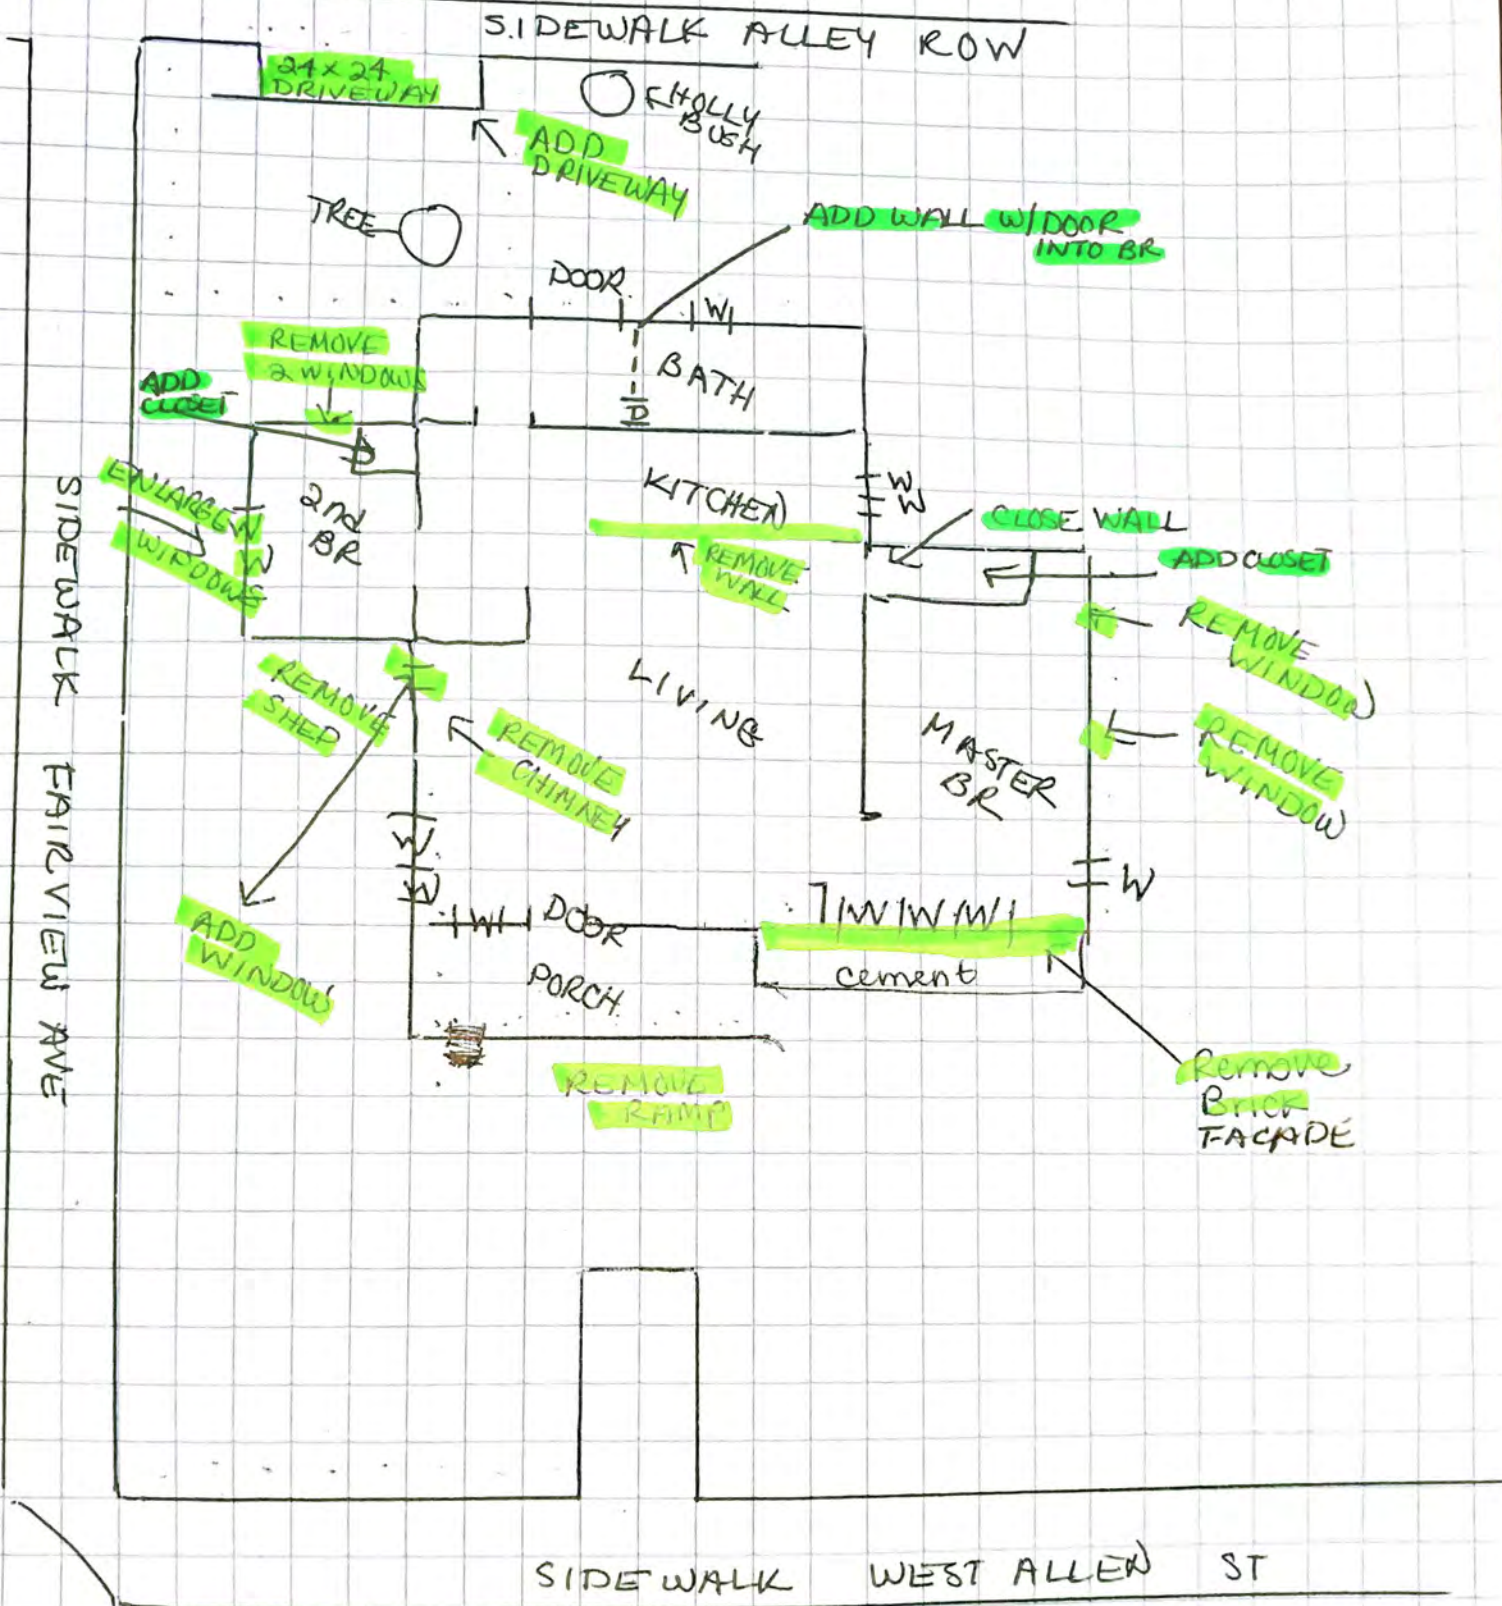 SIDEWALK ALLEY ROW
24 x 24
DRIVEWAY
HOLLY
BUSH
ADD
DRIVEWAY
TREE
ADD WALL W/DOOR
INTO BR
DOOR
W
REMOVE
2 WINDOWS
BATH
ADD
CLOSET
D
D
ENLARGE
WINDOWS
W
W
2nd
BR
KITCHEN
W
W
CLOSE WALL
ADD CLOSET
REMOVE
WALL
REMOVE
WINDOW
REMOVE
SHED
LIVING
REMOVE
CHIMNEY
MASTER
BR
REMOVE
WINDOW
W
W
W
ADD
WINDOW
W
DOOR
W W W
cement
PORCH
REMOVE
RAMP
Remove
Brick
FACADE
SIDEWALK FAIRVIEW AVE
SIDEWALK WEST ALLEN ST